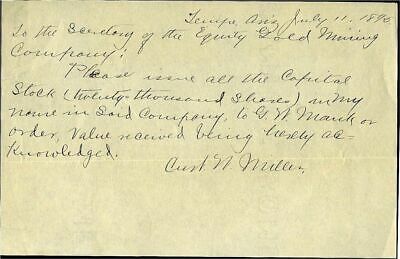 Tempe, Ariz July 11. 1896
To the Secretary of the Equity Gold Mining
Company:
Please issue all the Capital
Stock (twenty-thousand shares) in my
name in Said Company, to G. W. or
order, Value received being hereby ac-
knowledged.
Curt W. Miller,